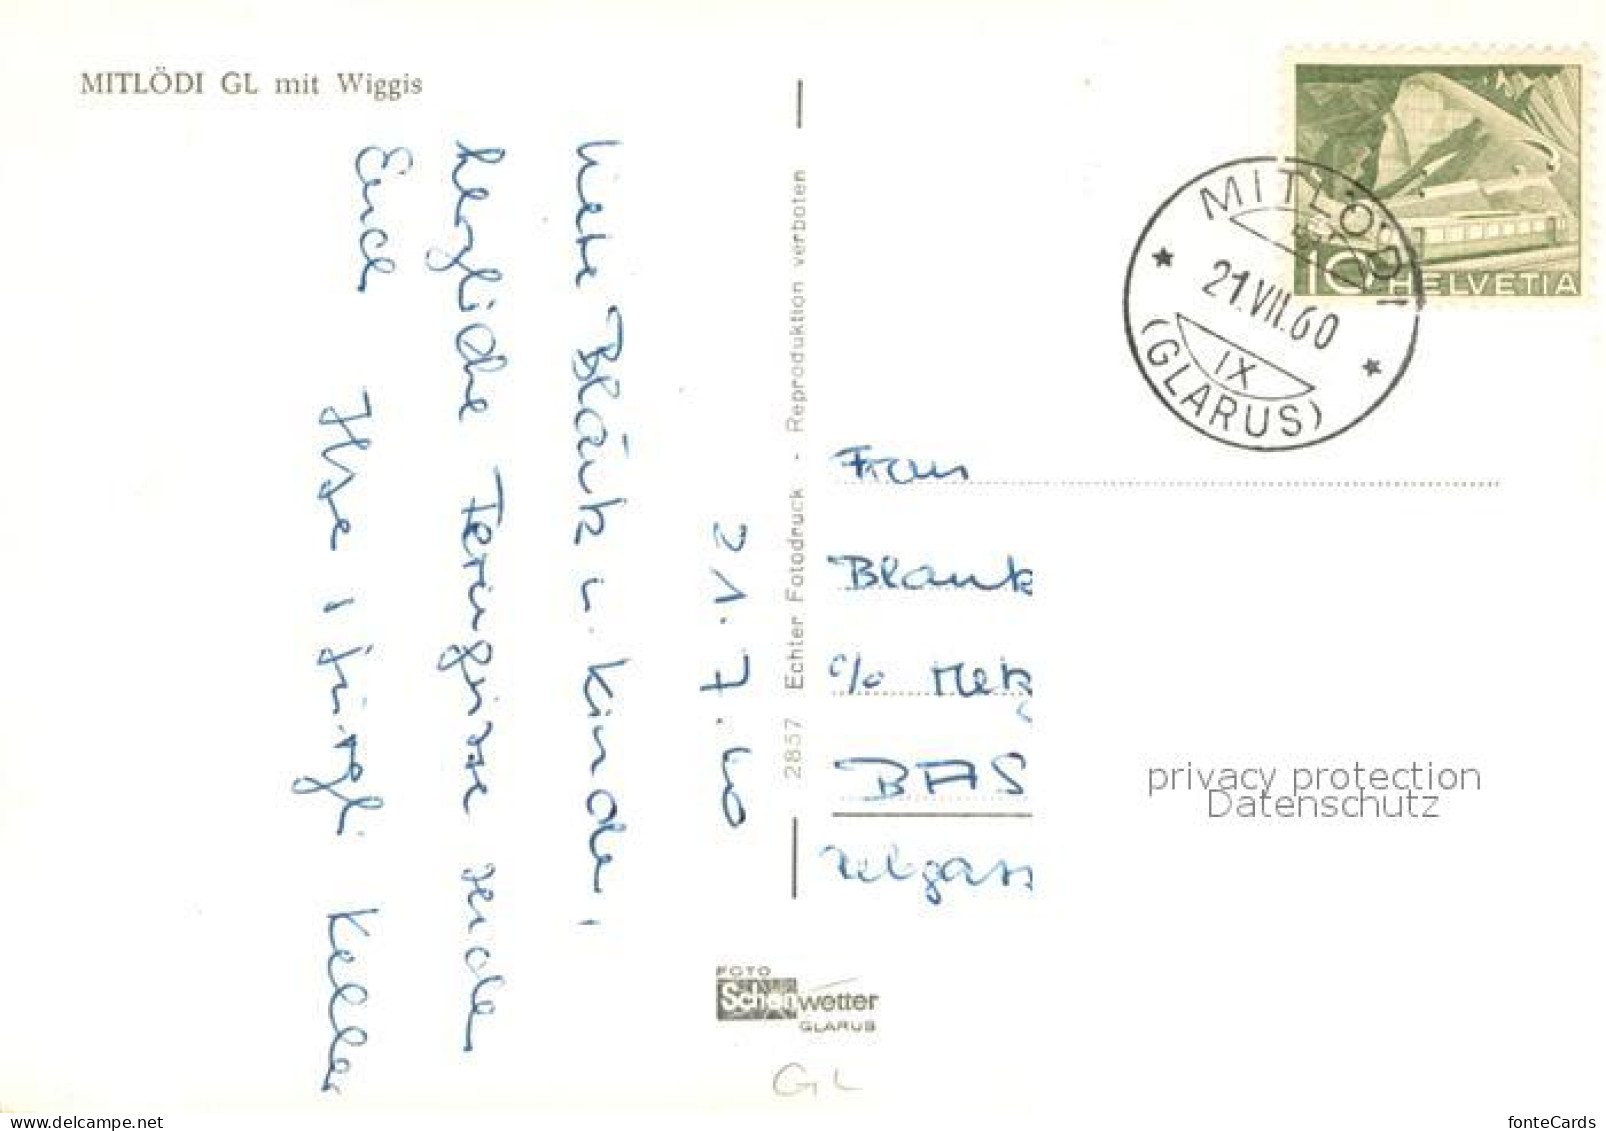 MITLÖDI GL mit Wiggis
21.7.60
Liebe Blank u. Kinder,
herzliche Feriengrüsse sendet
Euch Ilse, Jürgli Keller
2857 Echter Fotodruck - Reproduktion verboten
HELVETIA
10
MITLÖDI
21.VII.60
IX
(GLARUS)
Frau
Blank
c/o
BAS
privacy protection
Datenschutz
FOTO
Schönwetter
GLARUS
GL
fonteCards